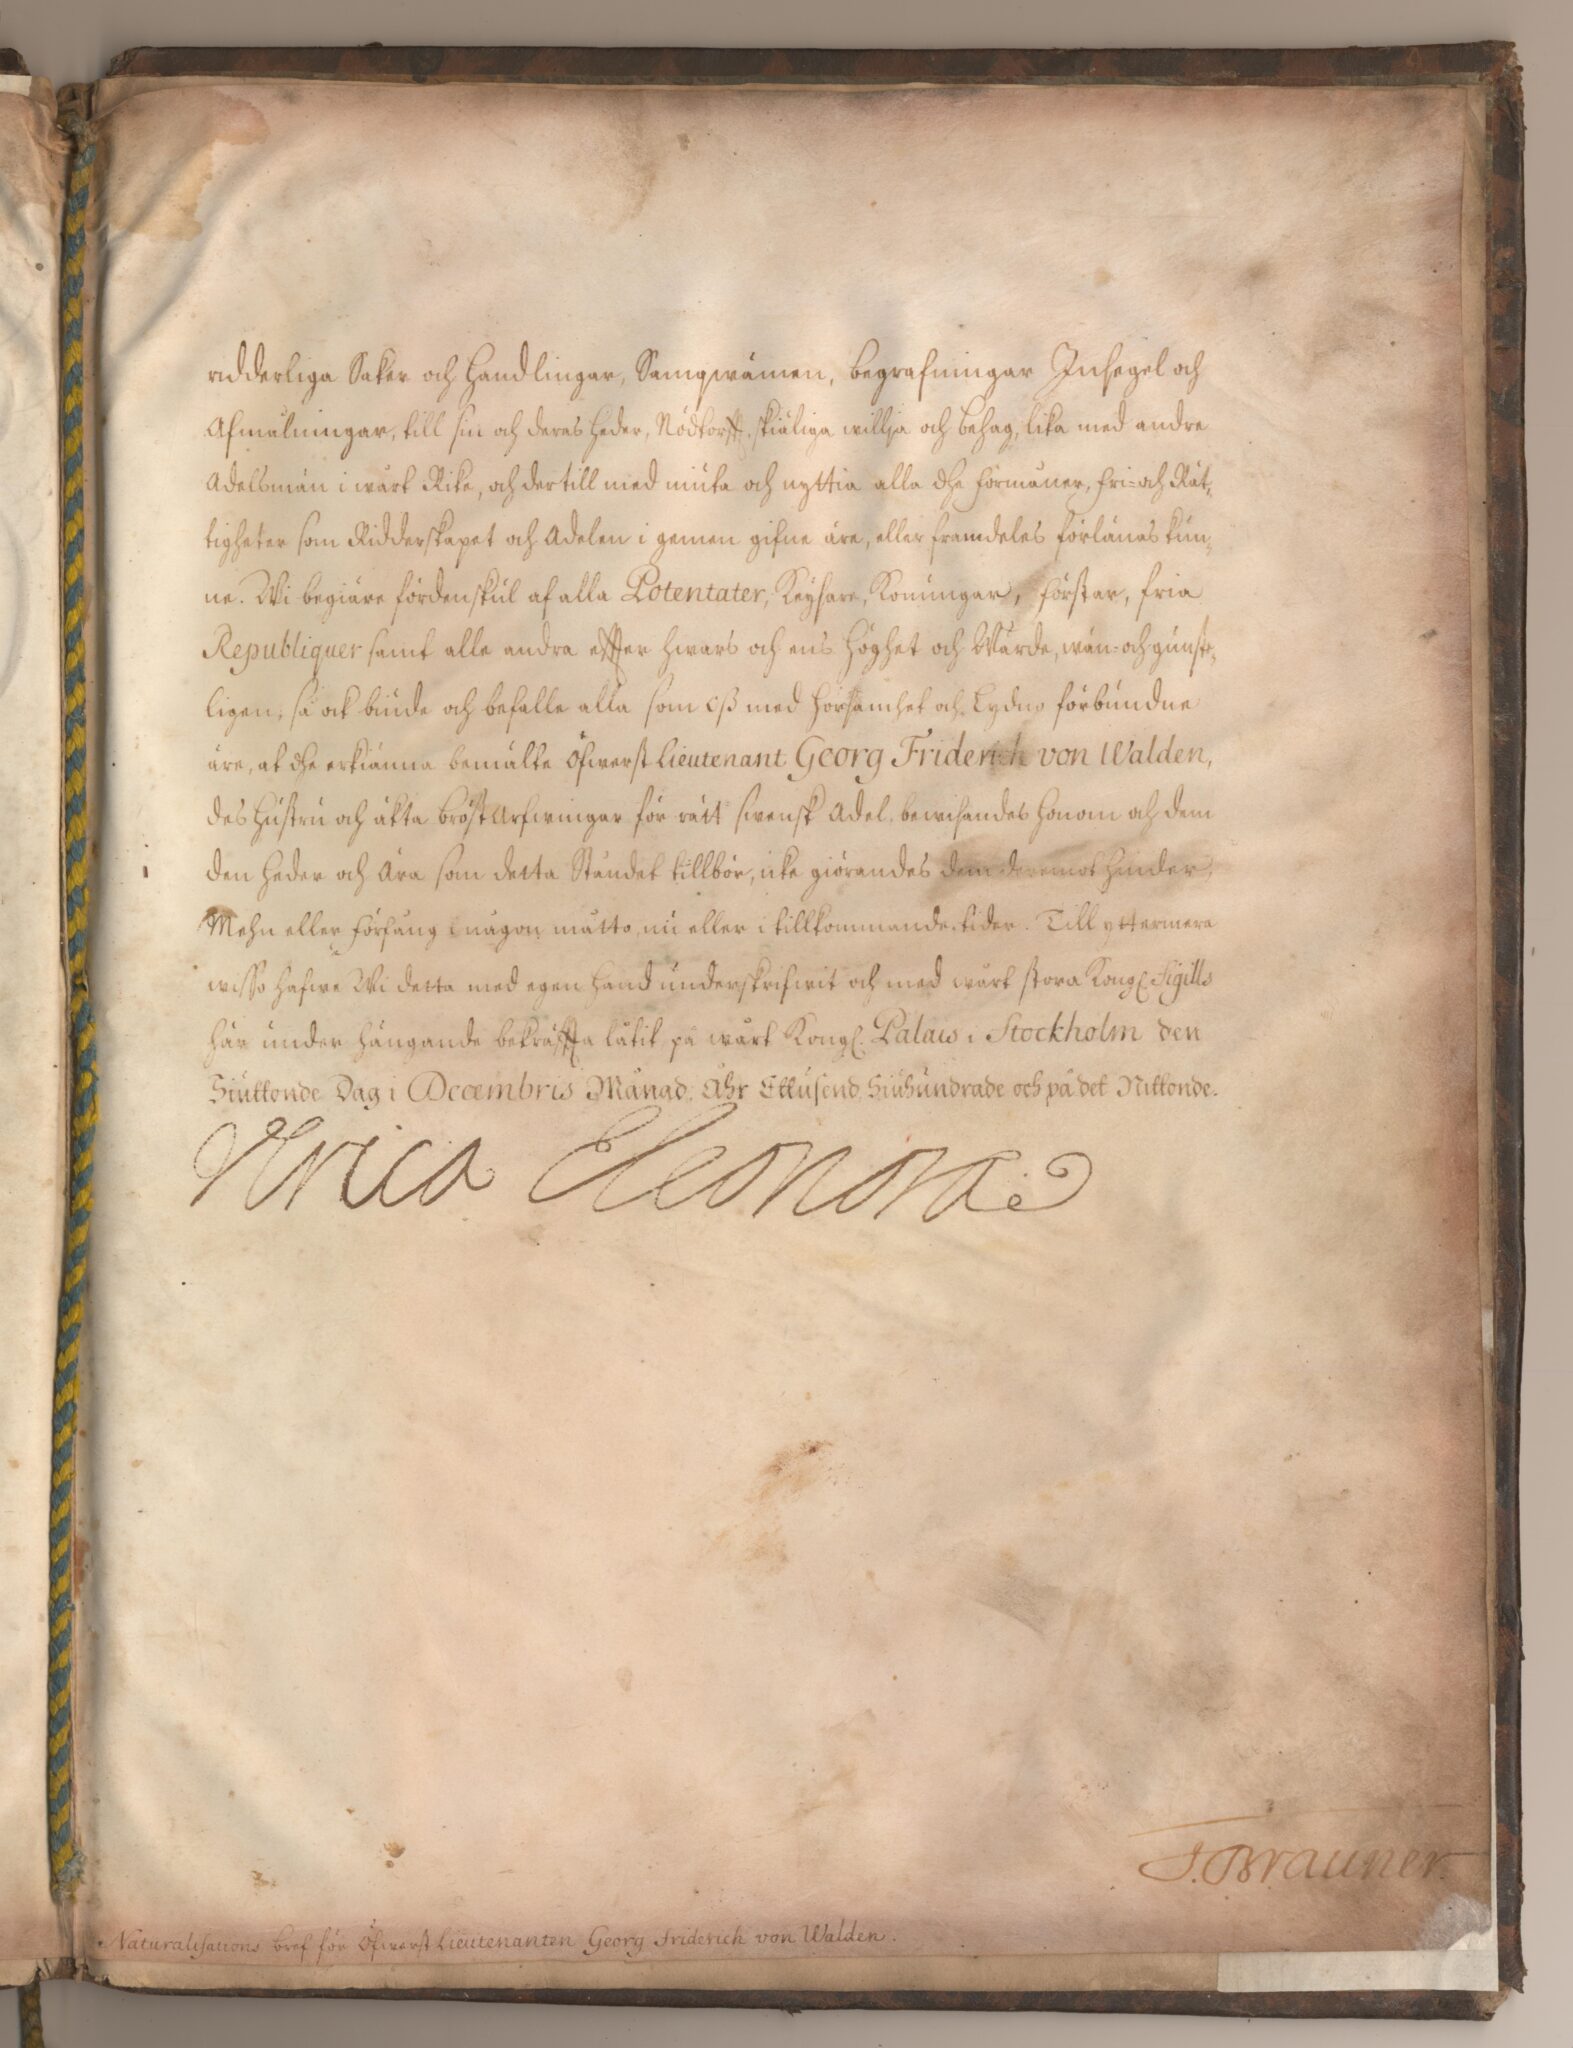 ridderliga Saker och Handlingar, Samqwämen, begrafningar Insegel och
Afmålningar, till sin och deras heder, Nödtorfft, skiäliga willja och behag, lika med andre
Adelsmän i wårt Rike, och der till med niuta och nyttia alla dhe förmåner, fri- och Rät-
tigheter som Ridderskapet och Adelen i gemen gifne äre, eller framdeles förlänas kun-
ne. Wi begiäre fördenskul af alla Potentater, Keysare, Konungar, förstar, fria
Republiquer samt alle andra effter hwars och ens Höghet och Wärde, wän- och gunste-
ligen, så ock biude och befalle alla som oß med hörsamhet och Lydno förbundne
äre, at dhe erkiänna bemälte Öfwerst Lieutenant Georg Friderich von Walden,
des Hustru och äkta bröst Arfwingar för rätt swensk Adel, bewisandes honom och dem
den heder och Ära som detta Ståndet tillbör, icke giörandes dem deremot hinder,
Mehn eller förfång i någon måtto, nu eller i tillkommande tider. Till yttermera
wisso hafwe Wi detta med egen hand underskrifwit och med wårt stora Kongl. Sigills
här under hängande bekräffta låtit på wårt Kongl. Palais i Stockholm den
Siuttonde Dag i Decembris Månad, Åhr Ettusend Siuhundrade och på det Nittonde.
Ulrica Eleonora
J. Brauner.
Naturalisations bref för Öfwerst Lieutenanten Georg Friderich von Walden.